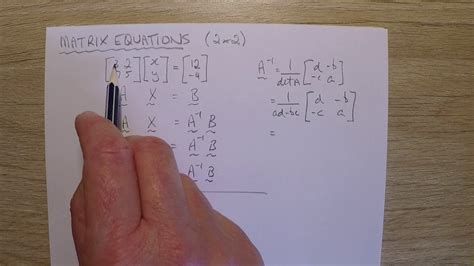 MATRIX EQUATIONS (2×2)
2 x = 12
5 y
A X = B
A X = A⁻¹ B
= A⁻¹ B
A⁻¹ B
A⁻¹ = 1/detA [d -b
-c a]
= 1/ad-bc [d -b
-c a]
=